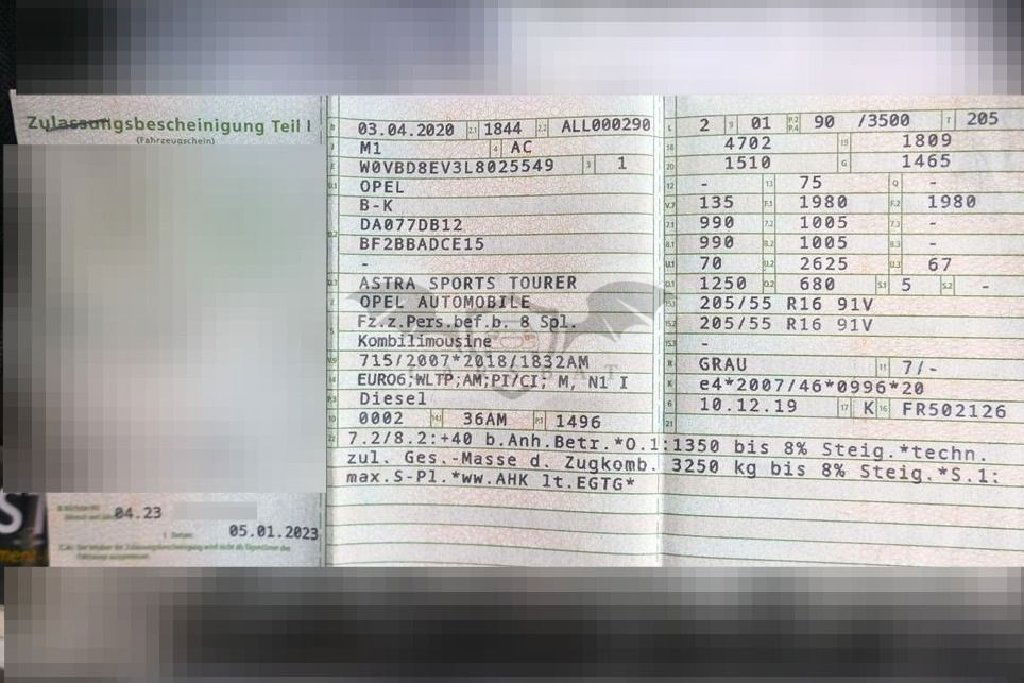 Zulassungsbescheinigung Teil I
(Fahrzeugschein)
04.23
05.01.2023
03.04.2020 2.1 1844 2.2 ALL000290
M1 4 AC
W0VBD8EV3L8025549 3 1
OPEL
B-K
DA077DB12
BF2BBADCE15
-
ASTRA SPORTS TOURER
OPEL AUTOMOBILE
Fz.z.Pers.bef.b. 8 Spl.
Kombilimousine
715/2007*2018/1832AM
EURO6;WLTP;AM;PI/CI; M, N1 I
Diesel
0002 36AM 1496
L 2 9 01 P.2 P.4 90 /3500 T 205
18 4702 19 1809
20 1510 G 1465
12 - 13 75 Q -
V.7 135 F.1 1980 F.2 1980
7.1 990 7.2 1005 7.3 -
8.1 990 8.2 1005 8.3 -
U.1 70 U.2 2625 U.3 67
O.1 1250 O.2 680 S.1 5 S.2 -
15.1 205/55 R16 91V
15.2 205/55 R16 91V
15.3 -
R GRAU 11 7/-
K e4*2007/46*0996*20
6 10.12.19 17 K 16 FR502126
21
7.2/8.2:+40 b.Anh.Betr.*O.1:1350 bis 8% Steig.*techn.
zul. Ges.-Masse d. Zugkomb. 3250 kg bis 8% Steig.*S.1:
max.S-Pl.*ww.AHK lt.EGTG*